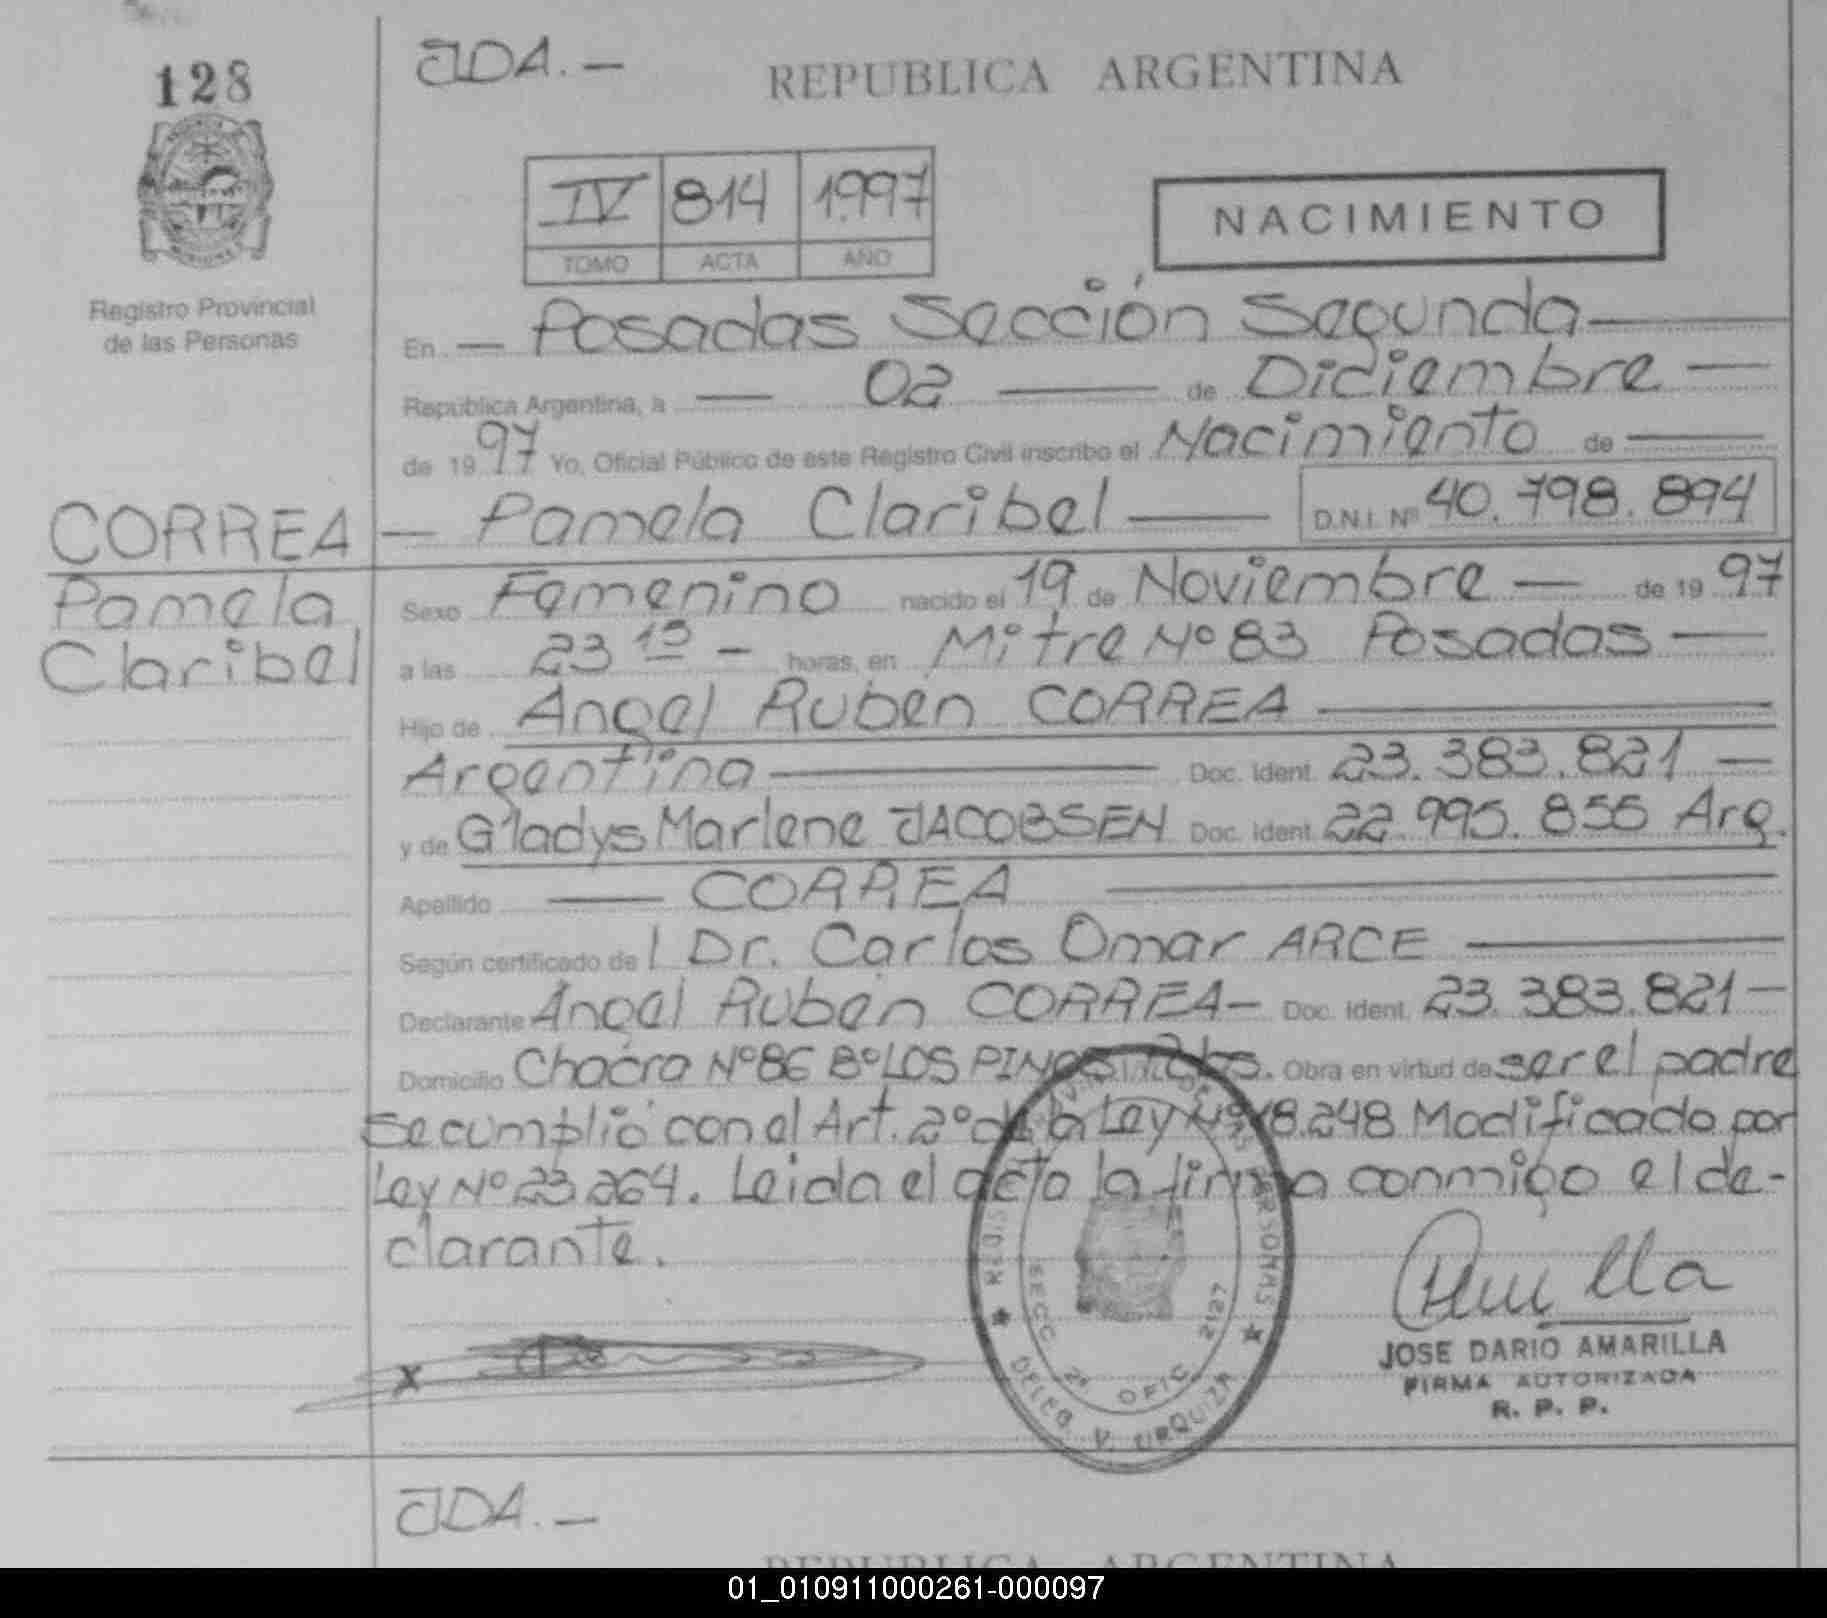 128
JDA.—
REPUBLICA ARGENTINA
IV 814 1997
TOMO ACTA AÑO
NACIMIENTO
Registro Provincial
de las Personas
En — Posadas Sección Segunda —
República Argentina, a — 02 — de Diciembre —
de 1997 Yo, Oficial Público de este Registro Civil inscribo el Nacimiento de —
CORREA
— Pamela Claribel — D.N.I. Nº 40.798.894
Pamela
Claribel
Sexo Femenino nacido el 19 de Noviembre — de 1997
a las 23 15 — horas, en Mitre Nº 83 Posadas —
Hijo de Angel Ruben CORREA —
Argentina — Doc. Ident. 23.383.821 —
y de Gladys Marlene JACOBSEN Doc. Ident. 22.995.855 Arg.
Apellido — CORREA —
Según certificado de l Dr. Carlos Omar ARCE —
Declarante Angel Ruben CORREA — Doc. Ident. 23.383.821 —
Domicilio Chacra Nº 86 Bº LOS PINOS Pdas. Obra en virtud de ser el padre
se cumplió con el Art. 2º de la Ley Nº 18.248 Modificado por
Ley Nº 23.264. Leida el acta la firma conmigo el de-
clarante.
x
REGISTRO PROVINCIAL DE LAS PERSONAS
SECC. 2ª OFIC. 2127
DELEG. V. URQUIZA
JOSE DARIO AMARILLA
FIRMA AUTORIZADA
R. P. P.
JDA.—
REPUBLICA ARGENTINA
01_010911000261-000097